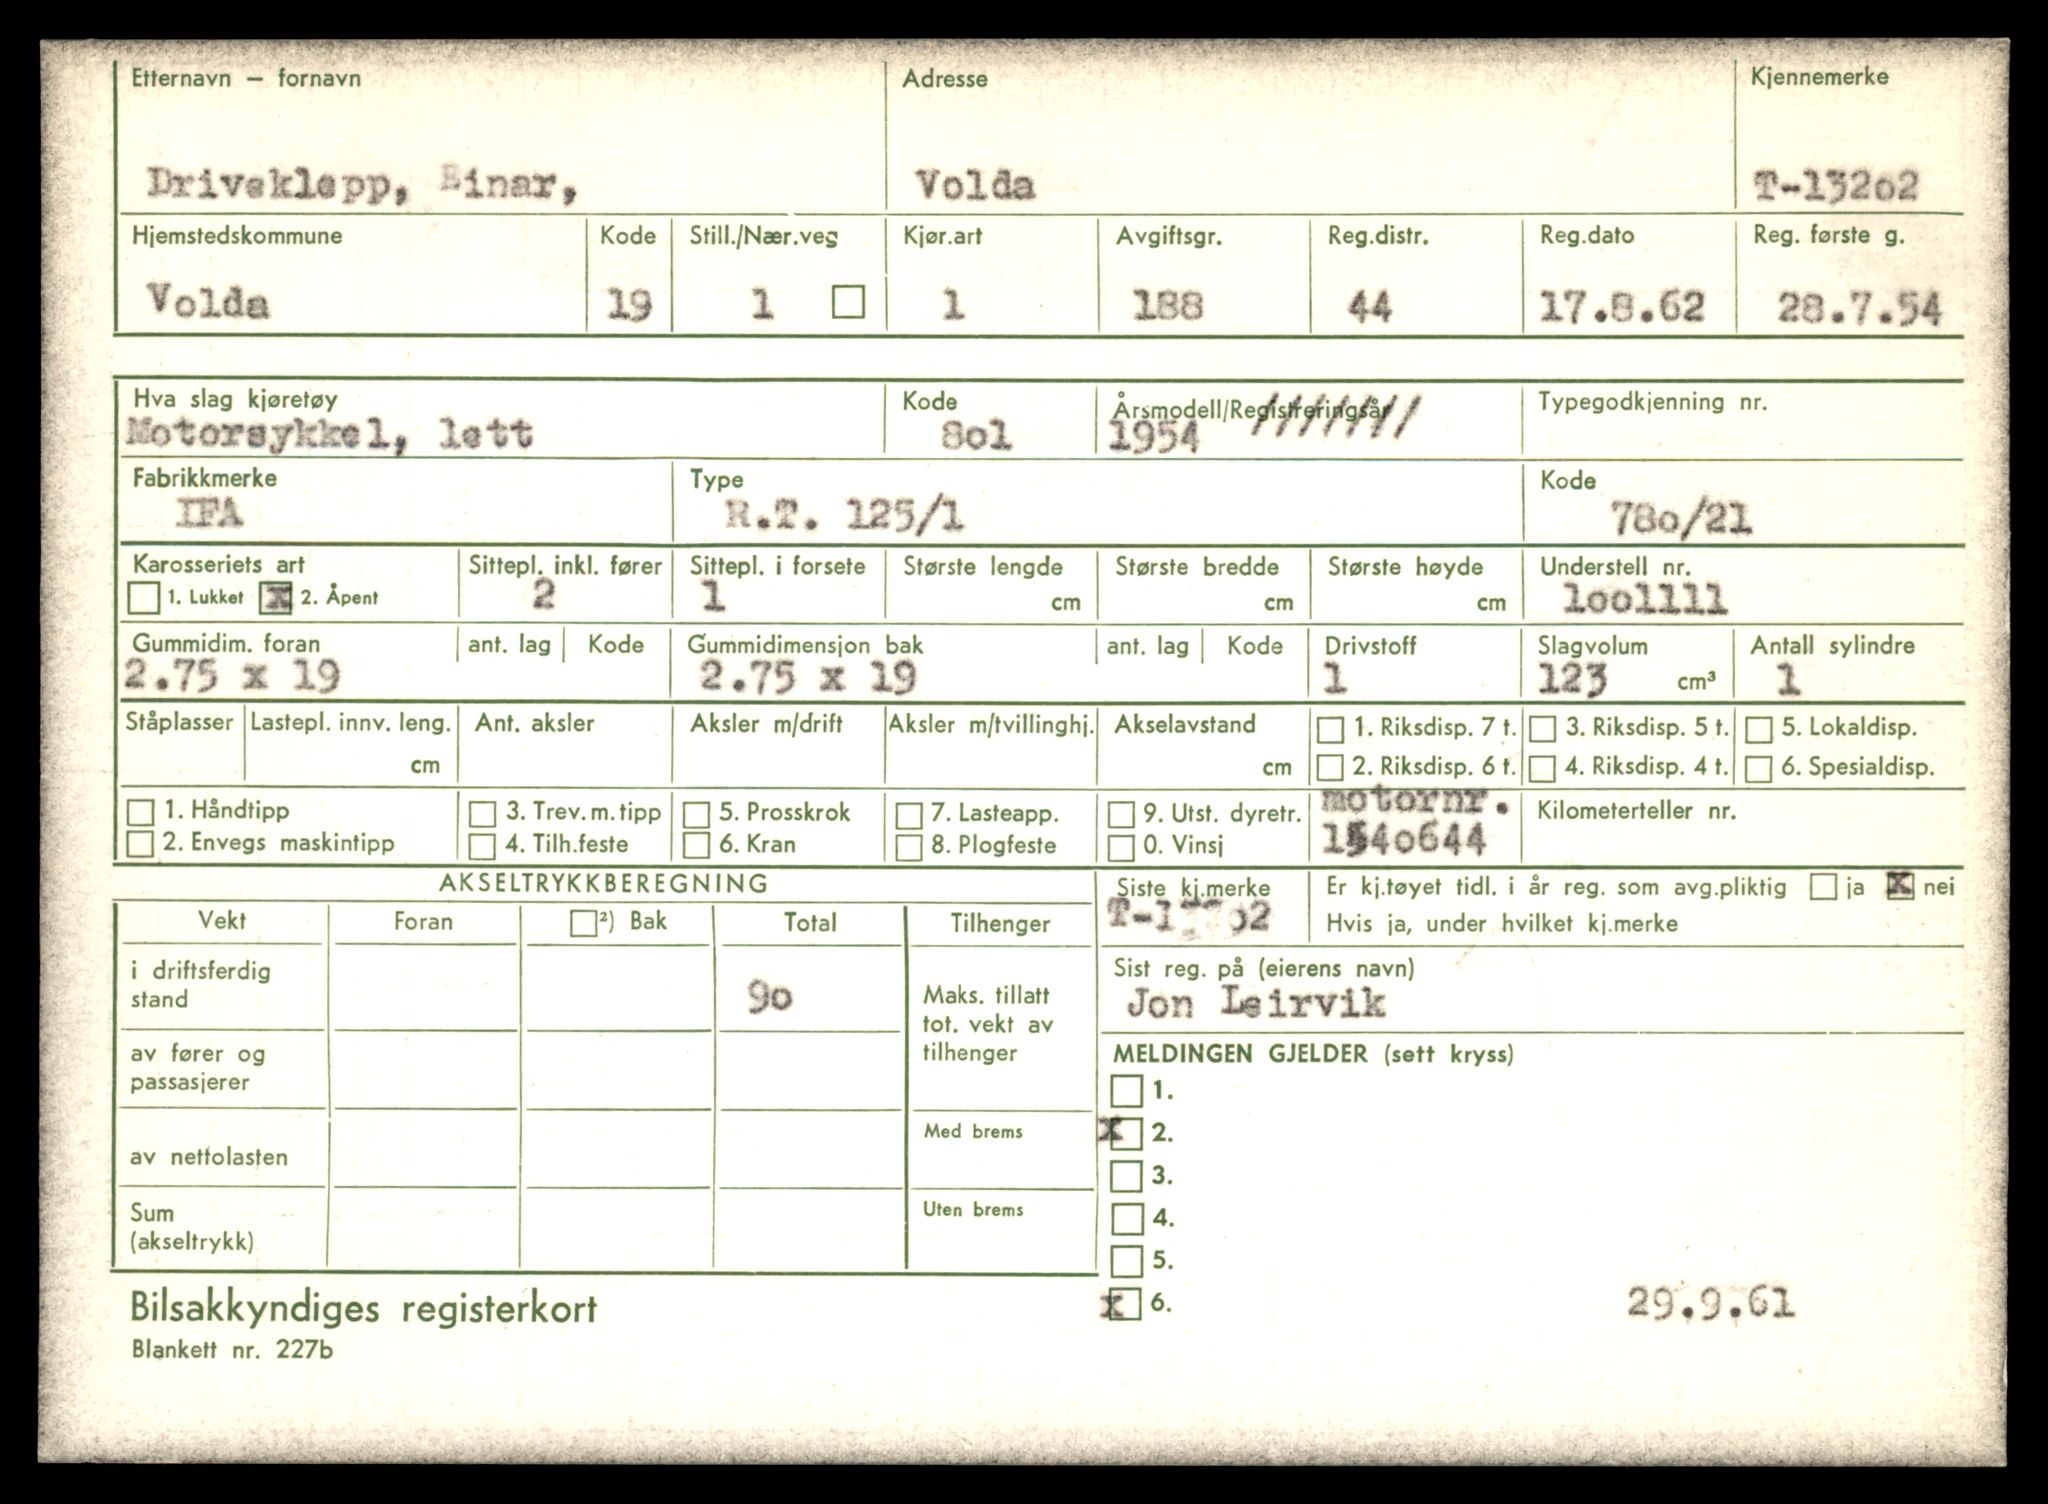 Etternavn – fornavn Adresse Kjennemerke
Driveklepp, Einar, Volda T-13202
Hjemstedskommune Kode Still./Nær.veg Kjør.art Avgiftsgr. Reg.distr. Reg.dato Reg. første g.
Volda 19 1 1 188 44 17.8.62 28.7.54
Hva slag kjøretøy Kode Årsmodell/Registreringsår /////// Typegodkjenning nr.
Motorsykkel, lett 8o1 1954
Fabrikkmerke Type Kode
IFA R.T. 125/1 78o/21
Karosseriets art Sittepl. inkl. fører Sittepl. i forsete Største lengde Største bredde Største høyde Understell nr.
1. Lukket x 2. Åpent 2 1 cm cm cm loo1111
Gummidim. foran ant. lag Kode Gummidimensjon bak ant. lag Kode Drivstoff Slagvolum Antall sylindre
2.75 x 19 2.75 x 19 1 123 cm³ 1
Ståplasser Lastepl. innv. leng. Ant. aksler Aksler m/drift Aksler m/tvillinghj. Akselavstand 1. Riksdisp. 7 t. 3. Riksdisp. 5 t. 5. Lokaldisp.
cm cm 2. Riksdisp. 6 t. 4. Riksdisp. 4 t. 6. Spesialdisp.
1. Håndtipp 3. Trev. m. tipp 5. Prosskrok 7. Lasteapp. 9. Utst. dyretr. motornr. Kilometerteller nr.
2. Envegs maskintipp 4. Tilh.feste 6. Kran 8. Plogfeste 0. Vinsj
AKSELTRYKKBEREGNING Siste kj.merke Er kj.tøyet tidl. i år reg. som avg.pliktig ja x nei
Vekt Foran ²) Bak Total Tilhenger Hvis ja, under hvilket kj.merke
i driftsferdig stand 9o
Maks. tillatt tot. vekt av tilhenger
Sist reg. på (eierens navn)
Jon Leirvik
av fører og passasjerer
MELDINGEN GJELDER (sett kryss)
1.
x 2.
Med brems
3.
av nettolasten
4.
Uten brems
Sum (akseltrykk)
5.
x 6. 29.9.61
Bilsakkyndiges registerkort
Blankett nr. 227b